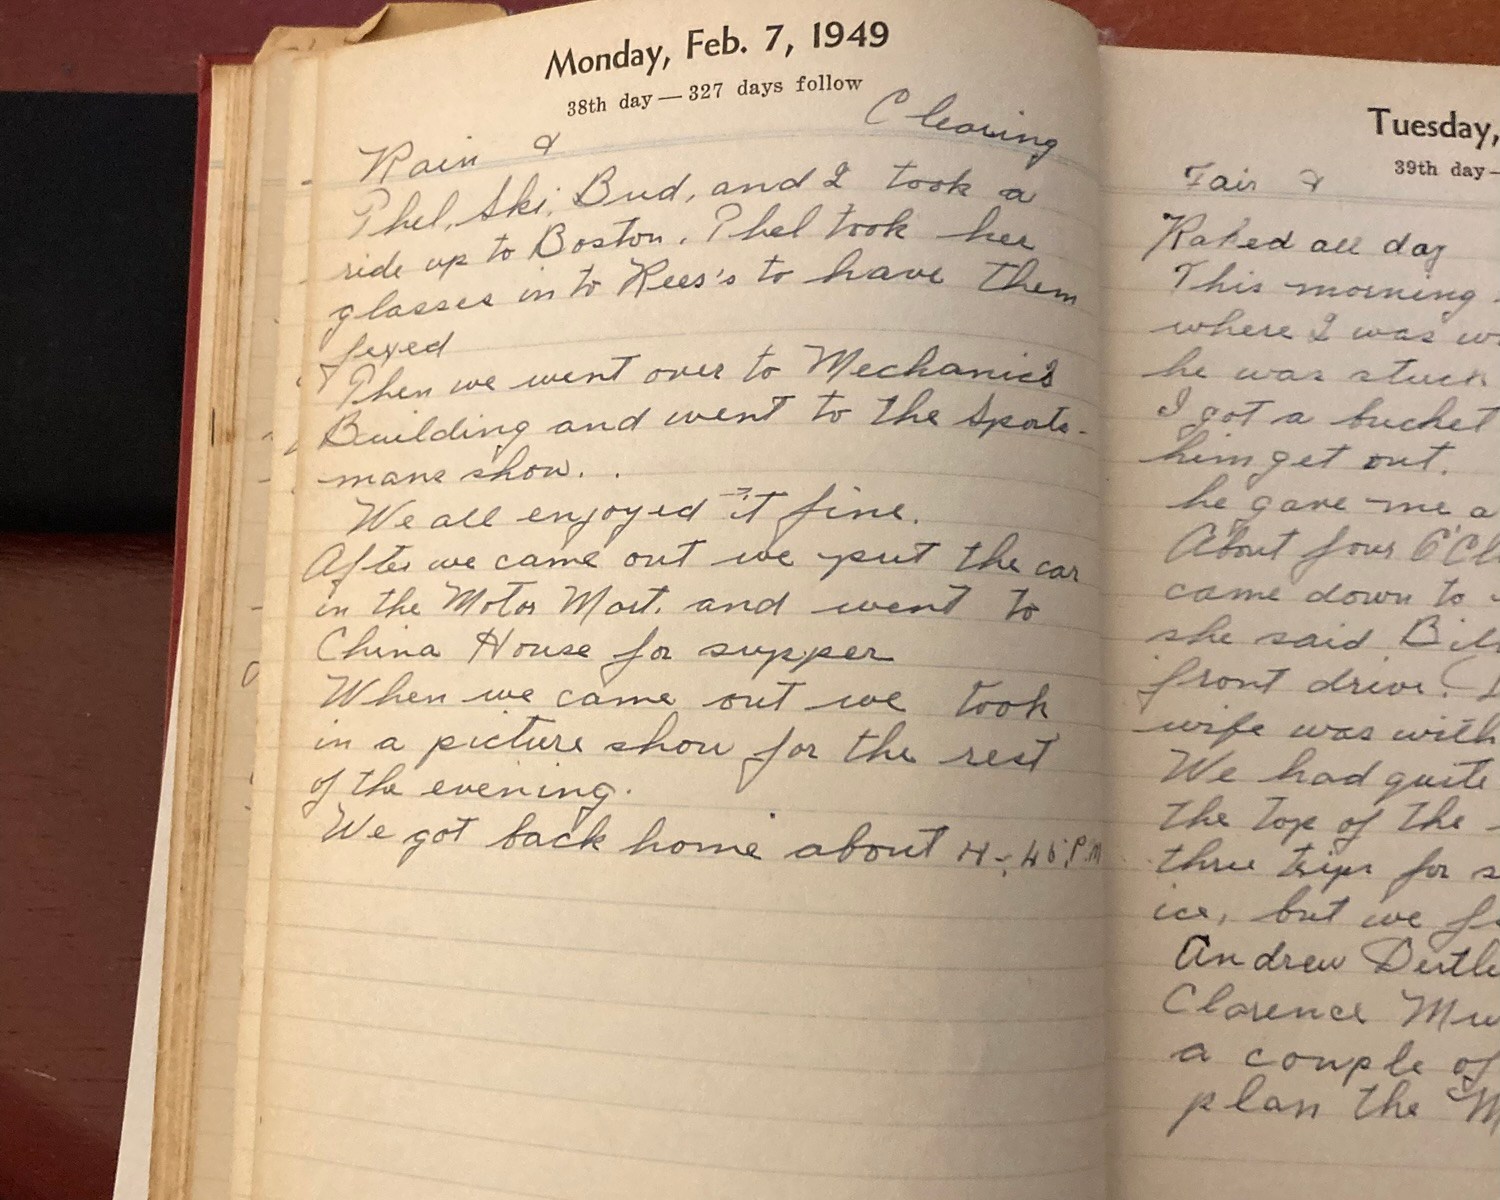 Monday, Feb. 7, 1949
38th day — 327 days follow
Rain & Clearing
Phel, Ski, Bud, and I took a
ride up to Boston. Phel took her
glasses in to Rees's to have them
fixed
Then we went over to Mechanics
Building and went to the Sports-
mans show.
We all enjoyed it fine.
After we came out we put the car
in the Motor Mart. and went to
China House for supper
When we came out we took
in a picture show for the rest
of the evening.
We got back home about P.M
Tuesday,
39th day—
Fair &
Raked all day
This morning
where I was
he was stuck
I got a bucket
him get out.
he gave me a
About four O'Cl
came down to
she said Bil
front drive.
wife was with
We had quite
the top of the
three trips for s
ice, but we
Andrew
Clarence Mu
a couple of
plan the "M